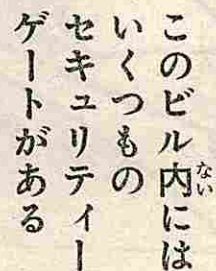 このビル内には
いくつもの
セキュリティー
ゲートがある
ない